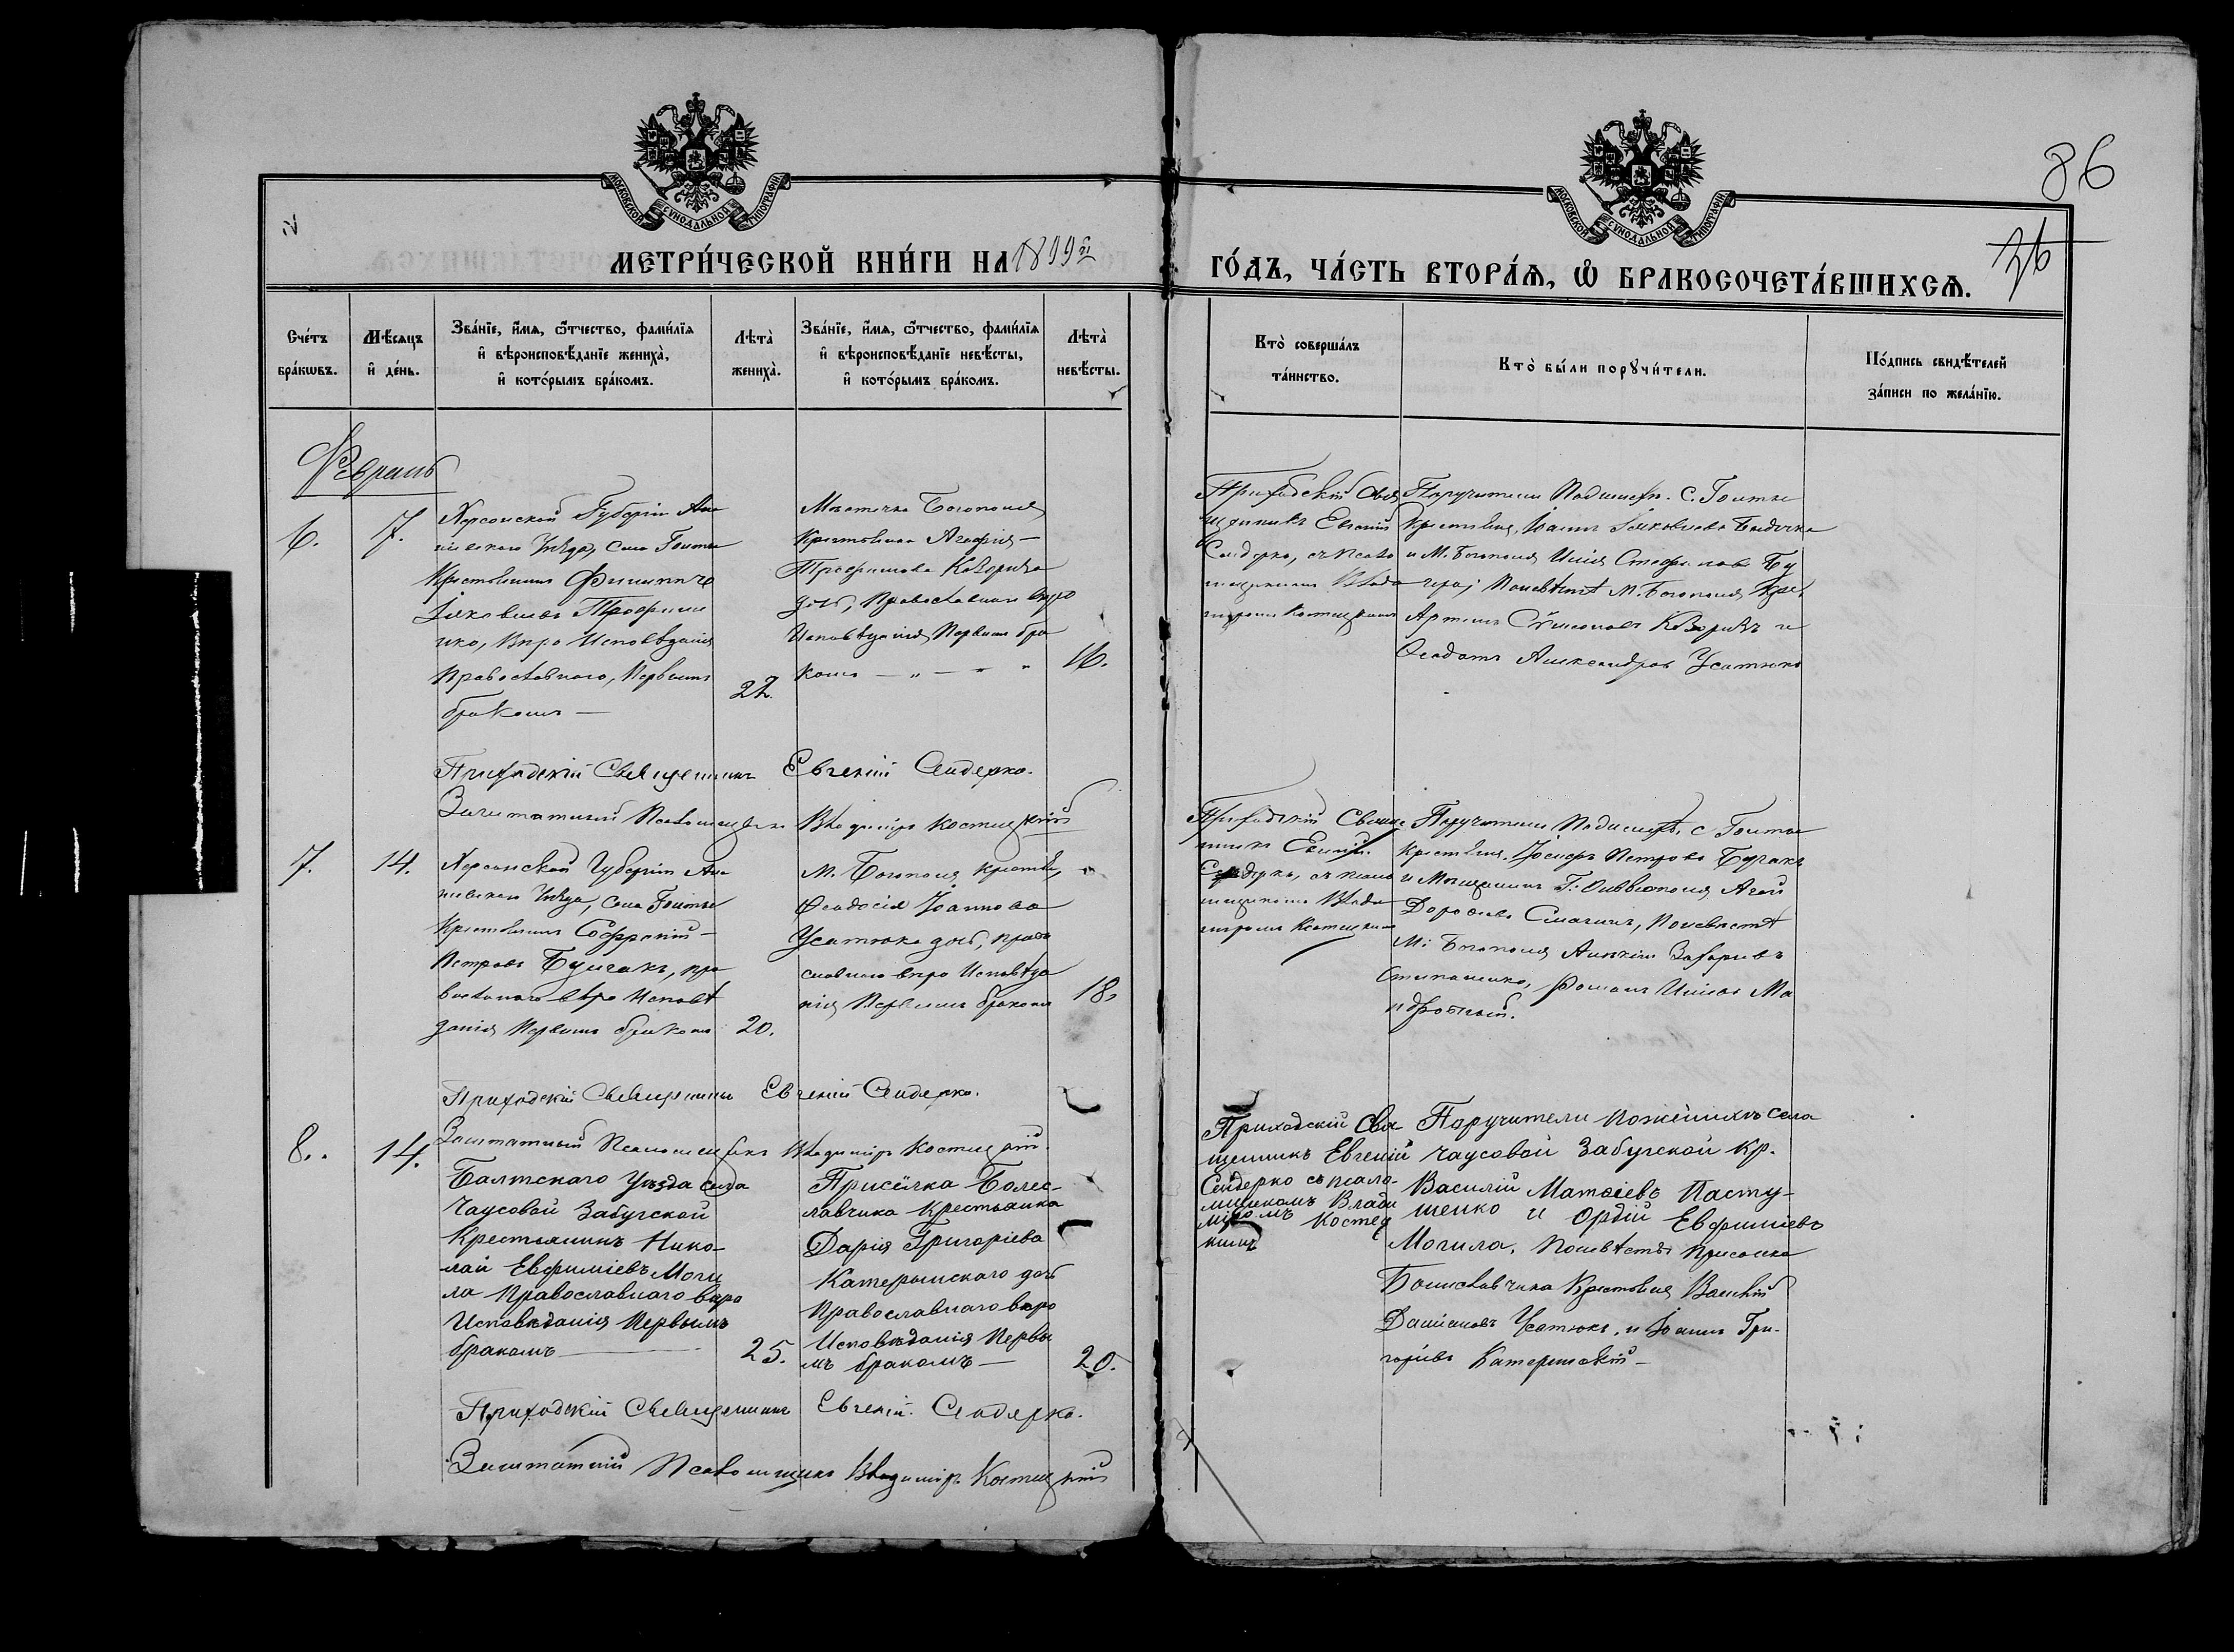 86
26
МОСКОВСКОЙ СѴНОДАЛЬНОЙ ТИПОГРАФІИ
МОСКОВСКОЙ СѴНОДАЛЬНОЙ ТИПОГРАФІИ
МЕТРИ́ЧЕСКОЙ КНИ́ГИ НА 1899й
ГО́ДЪ, ЧА́СТЬ ВТОРА́Ѧ, Ѡ҆ БРАКОСОЧЕТА́ВШИХСѦ.
Сче́тъ
бра́кѡвъ.
Мѣ́сѧцъ
и҆ де́нь.
Зва́нїе, и҆́мѧ, ѻ҆́тчество, фами́лїѧ
и҆ вѣроисповѣ́данїе жениха̀,
и҆ кото́рымъ бра́комъ.
Лѣта̀
жениха̀.
Зва́нїе, и҆́мѧ, ѻ҆́тчество, фами́лїѧ
и҆ вѣроисповѣ́данїе невѣ́сты,
и҆ кото́рымъ бра́комъ.
Лѣта̀
невѣ́сты.
Кто̀ соверша́лъ
та́инство.
Кто̀ бы́ли порꙋчи́тели.
По́дпись свидѣ́телей
за́писи по жела́нїю.
Февраль
6.
7.
Херсонской Губерніи Ана
ніевскаго Уѣзда, Села Голты
Крестьянинъ Филиппъ
Іаковлевъ Трофим
ко, Вѣро Исповѣданія
Православнаго, Первымъ
бракомъ —
22.
Мѣстечка Богополя
Крестьянка Агафія —
Трофимова
дочь, Православнаго вѣро
Исповѣданія Первымъ бра
комъ — „ — „ „
16.
Приходскій Свя
щенникъ Евгеній
Сендерко, съ Псало
мщикомъ Влади
міромъ Костецкимъ
Поручители По жениху: С. Голты
Крестьяне, Іоаннъ Іаковлевъ
и М. Богополя Илія Стефановъ Бу
; По невѣстѣ М. Богополя Кре.
Артемъ Сѵмеоновъ и
Ѳеодотъ Александровъ Усатюкъ
Приходскій Священникъ Евгеній Сендерко.
Заштатный Псаломщикъ Владиміръ Костецкій
7.
14.
Херсонской Губерніи Ана
ніевскаго Уѣзда, Села Голты
Крестьянинъ Софроній —
Петровъ, пра
вославнаго вѣро Исповѣ
данія Первымъ бракомъ
20.
М. Богополя крестьян
Ѳеодосія Іоаннова
Усатюка дочь, право
славнаго вѣро Исповѣда
нія Первымъ бракомъ
18.
Приходскій Священ
никъ Евгеній
Сендерко, съ псало
мщикомъ Влади
міромъ Костецкимъ
Поручители По жениху: с Голты
Крестьяне, Іосифъ Петровъ
и Мѣщанинъ Г. Ольвіополя
Дороѳеевъ, По невѣстѣ
М: Богополя Захаріевъ
Степаненко, Романъ Иліевъ Ма
Приходскій Священникъ Евгеній Сендерко.
Заштатный Псаломщикъ Владиміръ Костецкій.
8.
14.
Балтскаго Уѣзда села
Чаусовой Забугской
Крестьянинъ Нико-
лай Евфиміевъ Моги
ла Православнаго вѣро
Исповѣданія Первымъ
бракомъ —
25.
Присёлка Болес-
лавчика Крестьянка
Дарія Григоріева
Катеринскаго дочь
Православнаго вѣро
Исповѣданія Первы
мъ бракомъ —
20.
Приходскій Свя
щенникъ Евгеній
Сендерко съ псало-
мщикомъ Влади
міромъ Костец
кимъ
Поручители По жениху села
Чаусовой Забугской Кр.
Василій Матѳіевъ Пасту-
шенко и Евфиміевъ
Могила. По невѣстѣ Приселка
Болеславчика Крестьяне Василій
Даміановъ Усатюкъ, и Іоаннъ Гри-
горіевъ Катеринскій —
Приходскій Священникъ Евгеній Сендерко.
Заштатный Псаломщикъ Владиміръ Костецкій